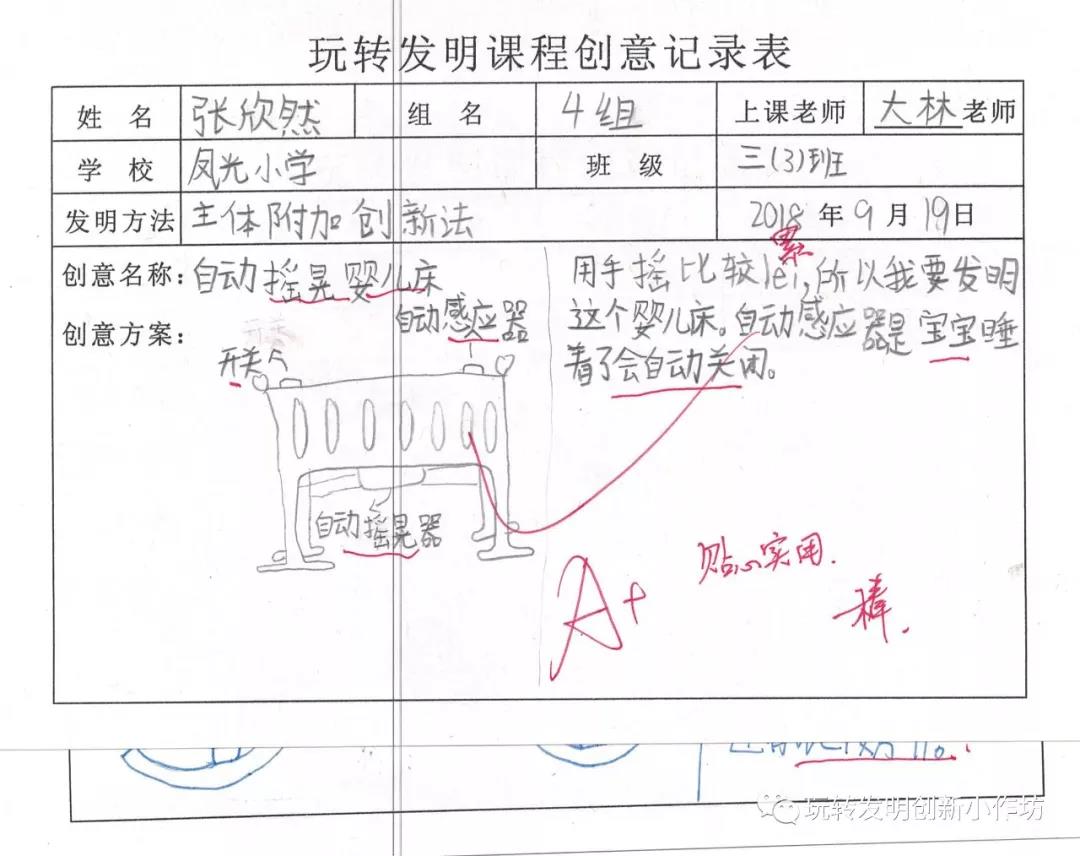 玩转发明课程创意记录表
姓 名 张欣然 组 名 4组 上课老师 大林老师
学 校 凤光小学 班 级 三(3)班
发明方法 主体附加创新法 2018年9月19日
创意名称:自动摇晃婴儿床
创意方案:
自动感应器
开关
开关
自动摇晃器
累
用手摇比较lei,所以我要发明
这个婴儿床。自动感应器是宝宝睡
着了会自动关闭。
A+
贴心实用.
棒.
玩转发明创新小作坊